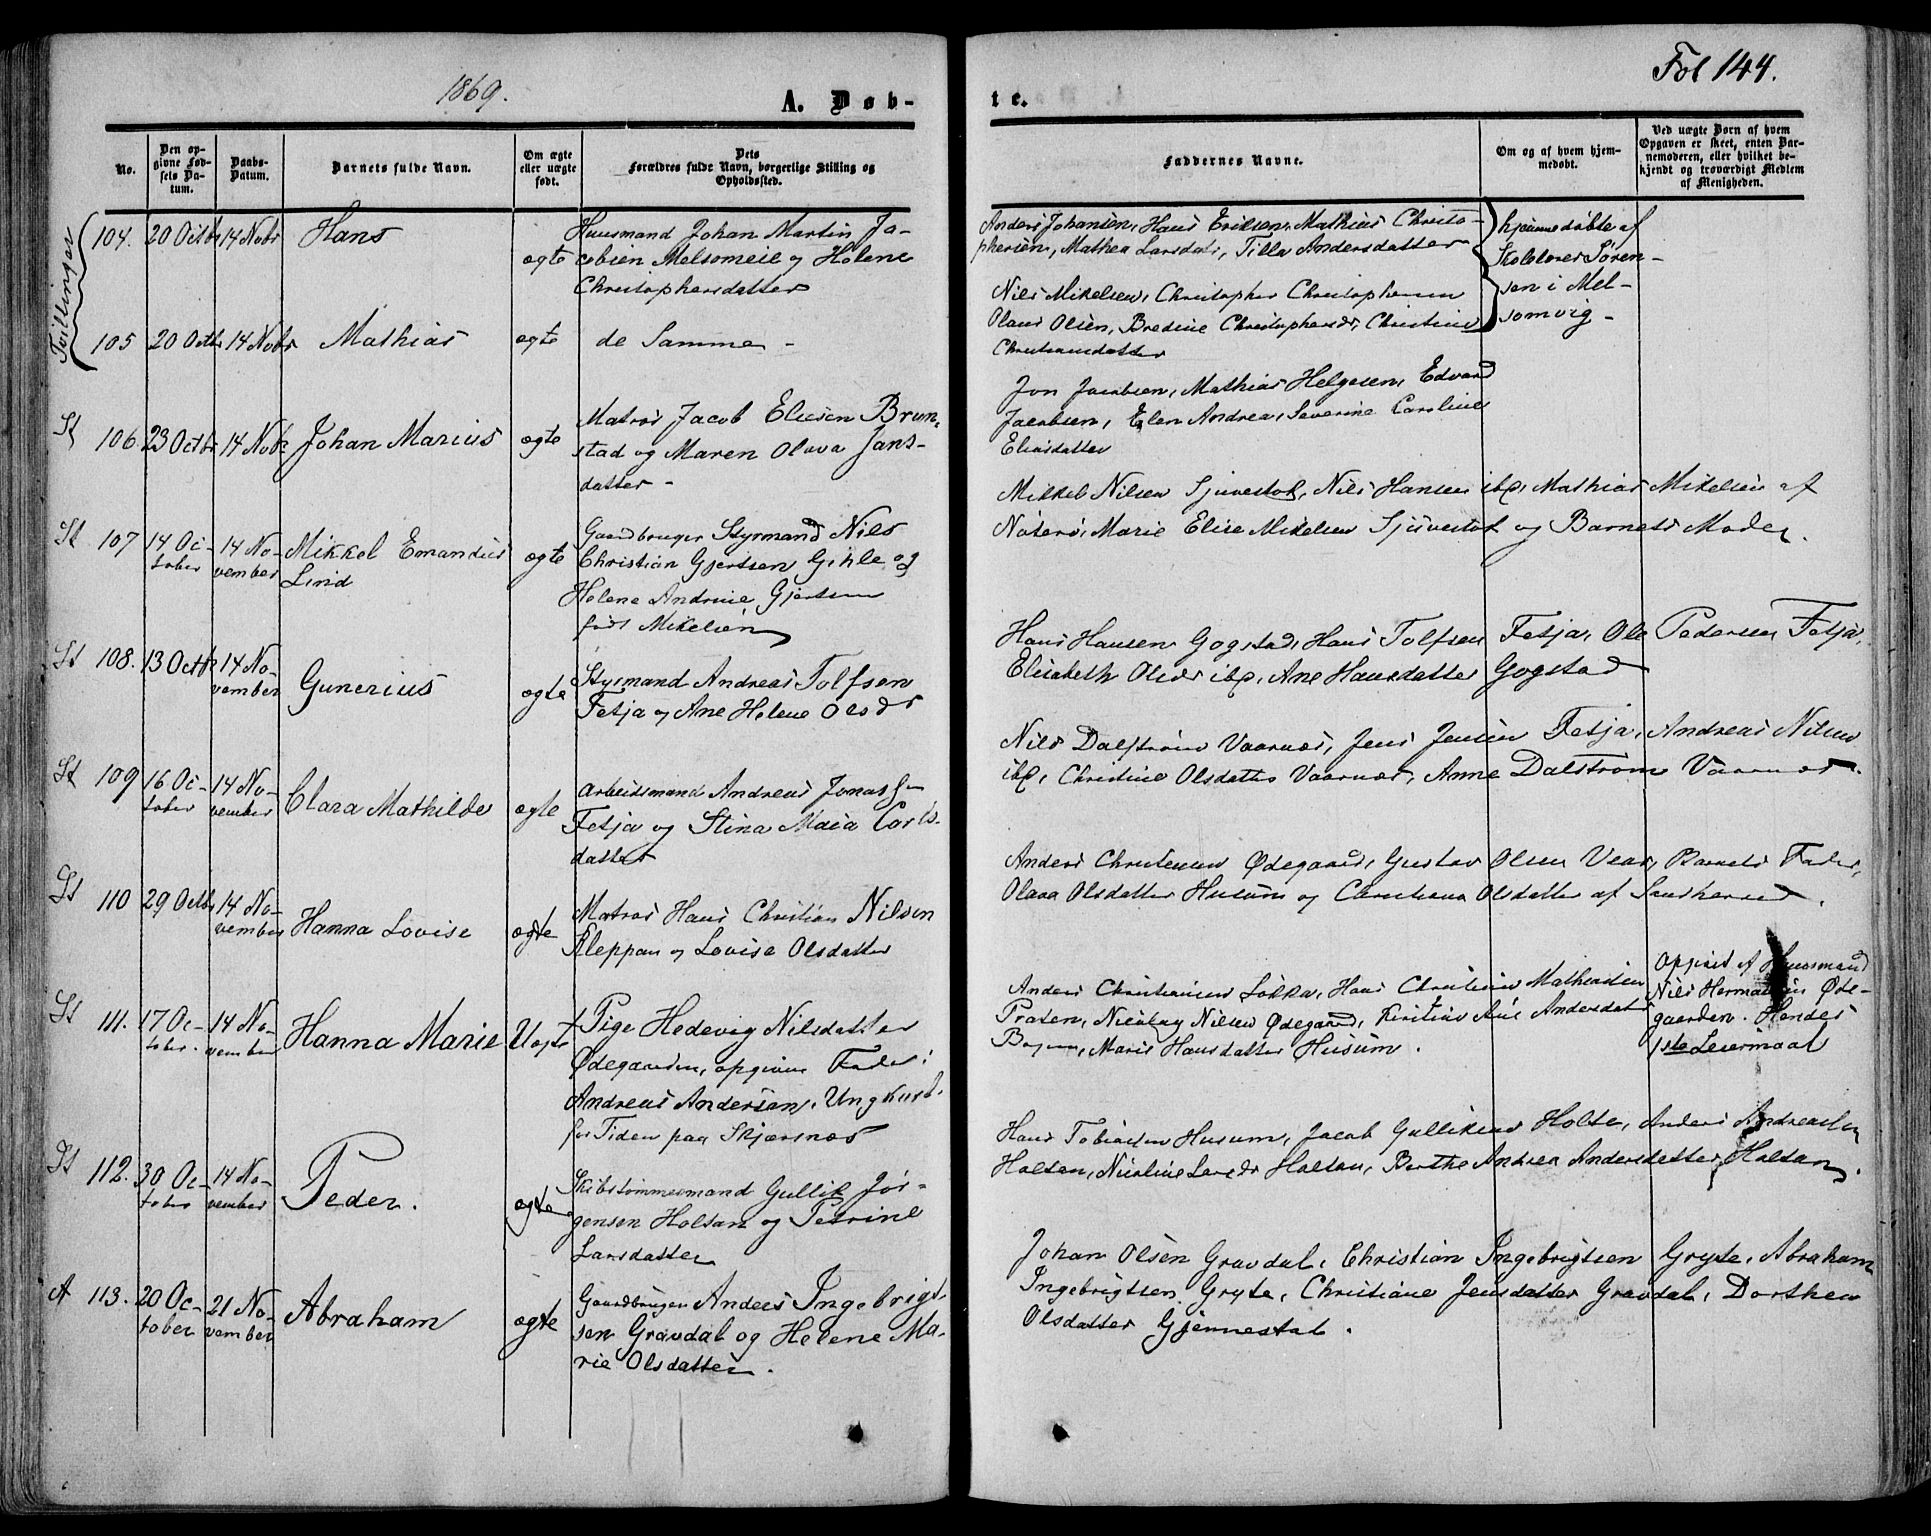 1869.
A. Døb-
te.
Fol 144.
No.
Den op-
givne Fød-
sels Da-
tum.
Daabs-
Datum.
Barnets fulde Navn.
Om ægte
eller uægte
født.
Dets
Forældres fulde Navn, borgerlige Stilling og
Opholdssted.
Faddernes Navne.
Om og af hvem hjem-
medøbt.
Ved uægte Børn af hvem
Opgaven er skeet, enten Bar-
nemoderen, eller hvilket be-
kjendt og troværdigt Medlem
af Menigheden.
Tvillinger
104. 20 Octbr 14 Nobr Hans ægte
Huusmand Johan Martin Ja-
cobsen Melsomeie og Helene
Christophersdatter
Anders Johansen, Hans Eriksen, Mathias Christo-
phersen, Mathea Larsdatr, Tilla Andersdatter
hjemmedøbte af
Skolelærer Søren-
sen i Mel-
somvig -
105 20 Octb 14 Nobr Mathias ægte de Samme -
Nils Mikelsen, Christopher Christophersen
Olaus Olsen, Bredine Christophersdr, Christine
Christiansdatter
St 106. 23 Octbr 14 Nobr Johan Marius ægte
Matros Jacob Eliesen Brun-
stad og Maren Olava Jans-
datter -
Jon Jacobsen, Mathias Helgesen, Edvard
Jacobsen, Elen Andrea, Severine Caroline
Eliasdatter
St 107 14 Oc-
tober 14 No-
vember Mikkel Emandius
Lind ægte
Gaardbruger Styrmand Nils
Christian Gjertsen Gihle og
Helene Andrine Gjertsen
født Mikelsen
Mikkel Nilsen Sjuestok, Nils Hansen ibd, Mathias Mikelsen af
Nøterø, Marie Elise Mikelsen Sjuestok og Barnets Moder.
St 108. 13 Octb 14 No-
vember Gunerius ægte
Styrmand Andreas Tolfsen
Fetja og Ane Helene Olsdr
Hans Hansen Gogstad, Hans Tolfsen Fetja, Ole Pedersen Fetja,
Elisabeth Olsdr ibd, Ane Hansdatter Gogstad
St 109 16 Oc-
tober 14 No-
vember Clara Mathilde ægte
Arbeidsmand Andreas Jonassen
Fetja og Stina Maia Carls-
datter
Nils Dalstrøm Vaarnæs, Jens Jensen Fetja, Andreas Nilsen
ibd, Christine Olsdatter Vaarnæs, Anne Dalstrøm Vaarnæs.
St 110 29 Octbr 14 No-
vember Hanna Lovise ægte
Matros Hans Christian Nilsen
Kleppan og Lovise Olsdatter
Anders Christensen Ødegaard, Gustav Olsen Vear, Barnets Fader,
Olava Olsdatter Husum og Christiane Olsdatter af Sandherred.
St 111. 17 Oc-
tober. 14 No-
vember Hanna Marie Uægte
Pige Hedevig Nilsdatter
Ødegaarden, opgiven Fader:
Andreas Andersen, Ungkarl.
for Tiden paa Skjærsnæs
Anders Christiansen Løkka, Hans Christian Mathiasen
Præsten, Nicolay Nilsen Ødegaard, Kirstine Andersdatr
Bogen, Maris Hansdatter Husum.
Opgivet af Huusmand
Nils Hermansen Øde-
gaarden. Hendes
1ste Leiermaal
St 112. 30 Oc-
tober 14 No-
vember Peder. ægte
Skibstømmermand Gullik Jør-
gensen Holtan og Petrine
Larsdatter
Hans Tobiassen Husum, Jacob Gulliksen Holte, Anders Andreassen
Holtan, Nicoline Larsdr Holtan, Berthe Andrea Andersdatter Holtan.
A 113. 20 Oc-
tober 21 No-
vember Abraham ægte
Gaardbruger Anders Ingebrigt-
sen Gravdal og Helene Ma-
rie Olsdatter.
Johan Olsen Gravdal, Christian Ingebrigtsen Gryte, Abraham
Ingebrigtsen Gryte, Christiane Jensdatter Gravdal, Dorthea
Olsdatter Gjennestal.